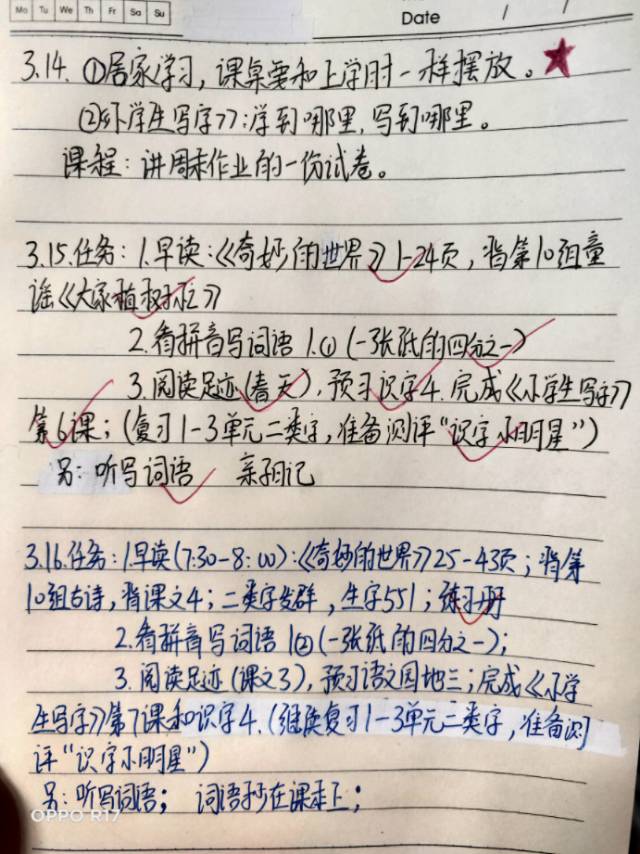 Mo Tu We Th Fr Sa Su
Date / /
3.14. ①居家学习，课桌要和上学时一样摆放。
②《小学生写字》：学到哪里，写到哪里。
课程：讲周末作业的一份试卷。
3.15.任务：1.早读：《奇妙的世界》1-24页，背第10组童
谣《大家植树忙》
2.看拼音写词语 1.①（一张纸的四分之一）
3.阅读足迹（春天），预习识字4.完成《小学生写字》
第6课；（复习1-3单元二类字，准备测评“识字小明星”）
另：听写词语 亲子日记
3.16.任务：1.早读（7:30-8:00）：《奇妙的世界》25-43页；背第
10组古诗，背课文4；二类字发群，生字551；练习册
2.看拼音写词语 1②（一张纸的四分之一）；
3.阅读足迹（课文3），预习语文园地三；完成《小学
生写字》第7课和识字4.（继续复习1-3单元二类字，准备测
评“识字小明星”）
另：听写词语； 词语抄在课本上；
OPPO R17